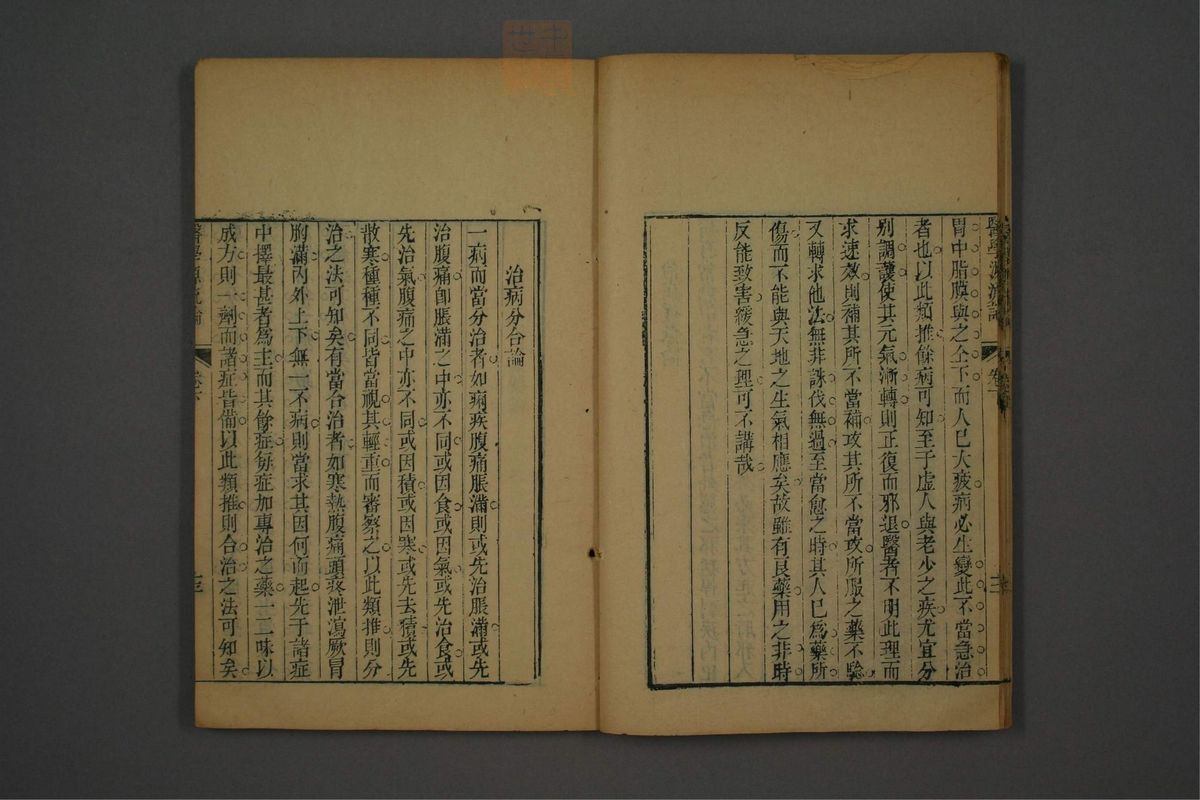 醫學源流論
卷下
胃中脂膜與之全下而人已大疲病必生變此不當急治
者也以此類推餘病可知至于虛人與老少之疾尤宜分
別調護使其元氣漸轉則正復而邪退醫者不明此理而
求速效則補其所不當補攻其所不當攻所服之藥不驗
又轉求他法無非誅伐無過至當愈之時其人已爲藥所
傷而不能與天地之生氣相應矣故雖有良藥用之非時
反能致害緩急之理可不講哉
治病分合論
一病而當分治者如痢疾腹痛脹滿則或先治脹滿或先
治腹痛卽脹滿之中亦不同或因食或因氣或先治食或
先治氣腹痛之中亦不同或因積或因寒或先去積或先
散寒種種不同皆當視其輕重而審察之以此類推則分
治之法可知矣有當合治者如寒熱腹痛頭疼泄瀉厥冒
胸滿內外上下無一不病則當求其因何而起先于諸症
中擇最甚者爲主而其餘症每症加專治之藥一二味以
成方則一劑而諸症皆備以此類推則合治之法可知矣
醫學源流論
卷下